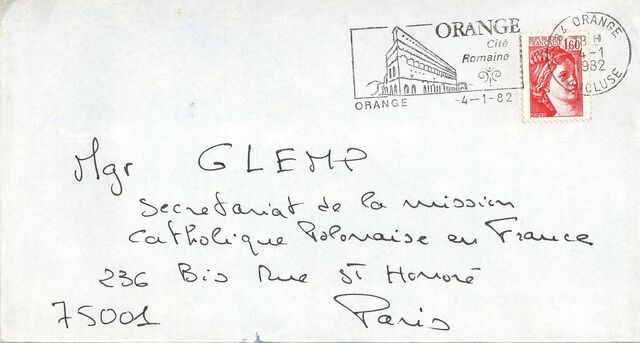 ORANGE
Cité
Romaine
ORANGE
-4--1-82
1,60
84 ORANGE
18 H
4-1
1982
VAUCLUSE
Mgr GLEMP
Secretariat de la mission
Catholique Polonaise en France
236 Bis Rue St Honoré
75001 Paris